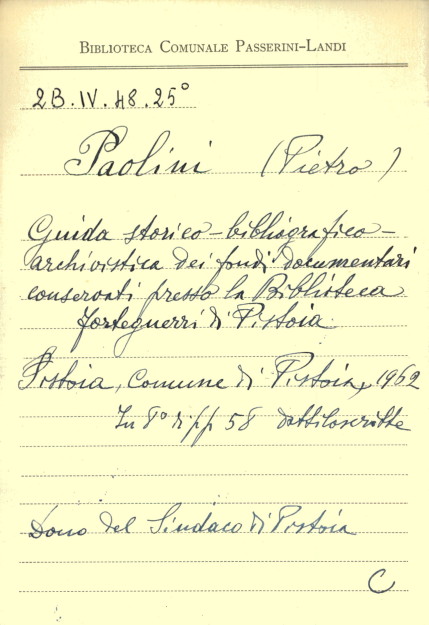 BIBLIOTECA COMUNALE PASSERINI-LANDI
2B.IV.48.25°
Paolini (Pietro)
Guida storico-bibliografico-
archivistica dei fondi documentari
conservati presso la Biblioteca
Forteguerri di Pistoia
Pistoia, Comune di Pistoia, 1962
In 8° di pp 58 dattiloscritte
Dono del Sindaco di Pistoia
C